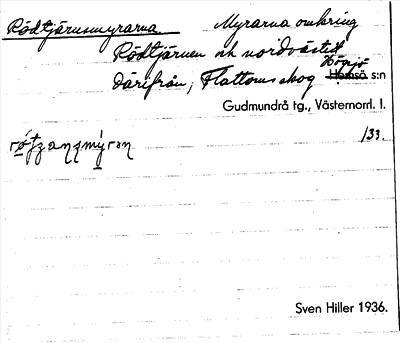 Rödtjärnsmyrarna Myrarna omkring
Rödtjärnen och nordväst
därifrån, Flattoms skog Högsjö s:n
Gudmundrå tg., Västernorrl. l.
133.
Sven Hiller 1936.